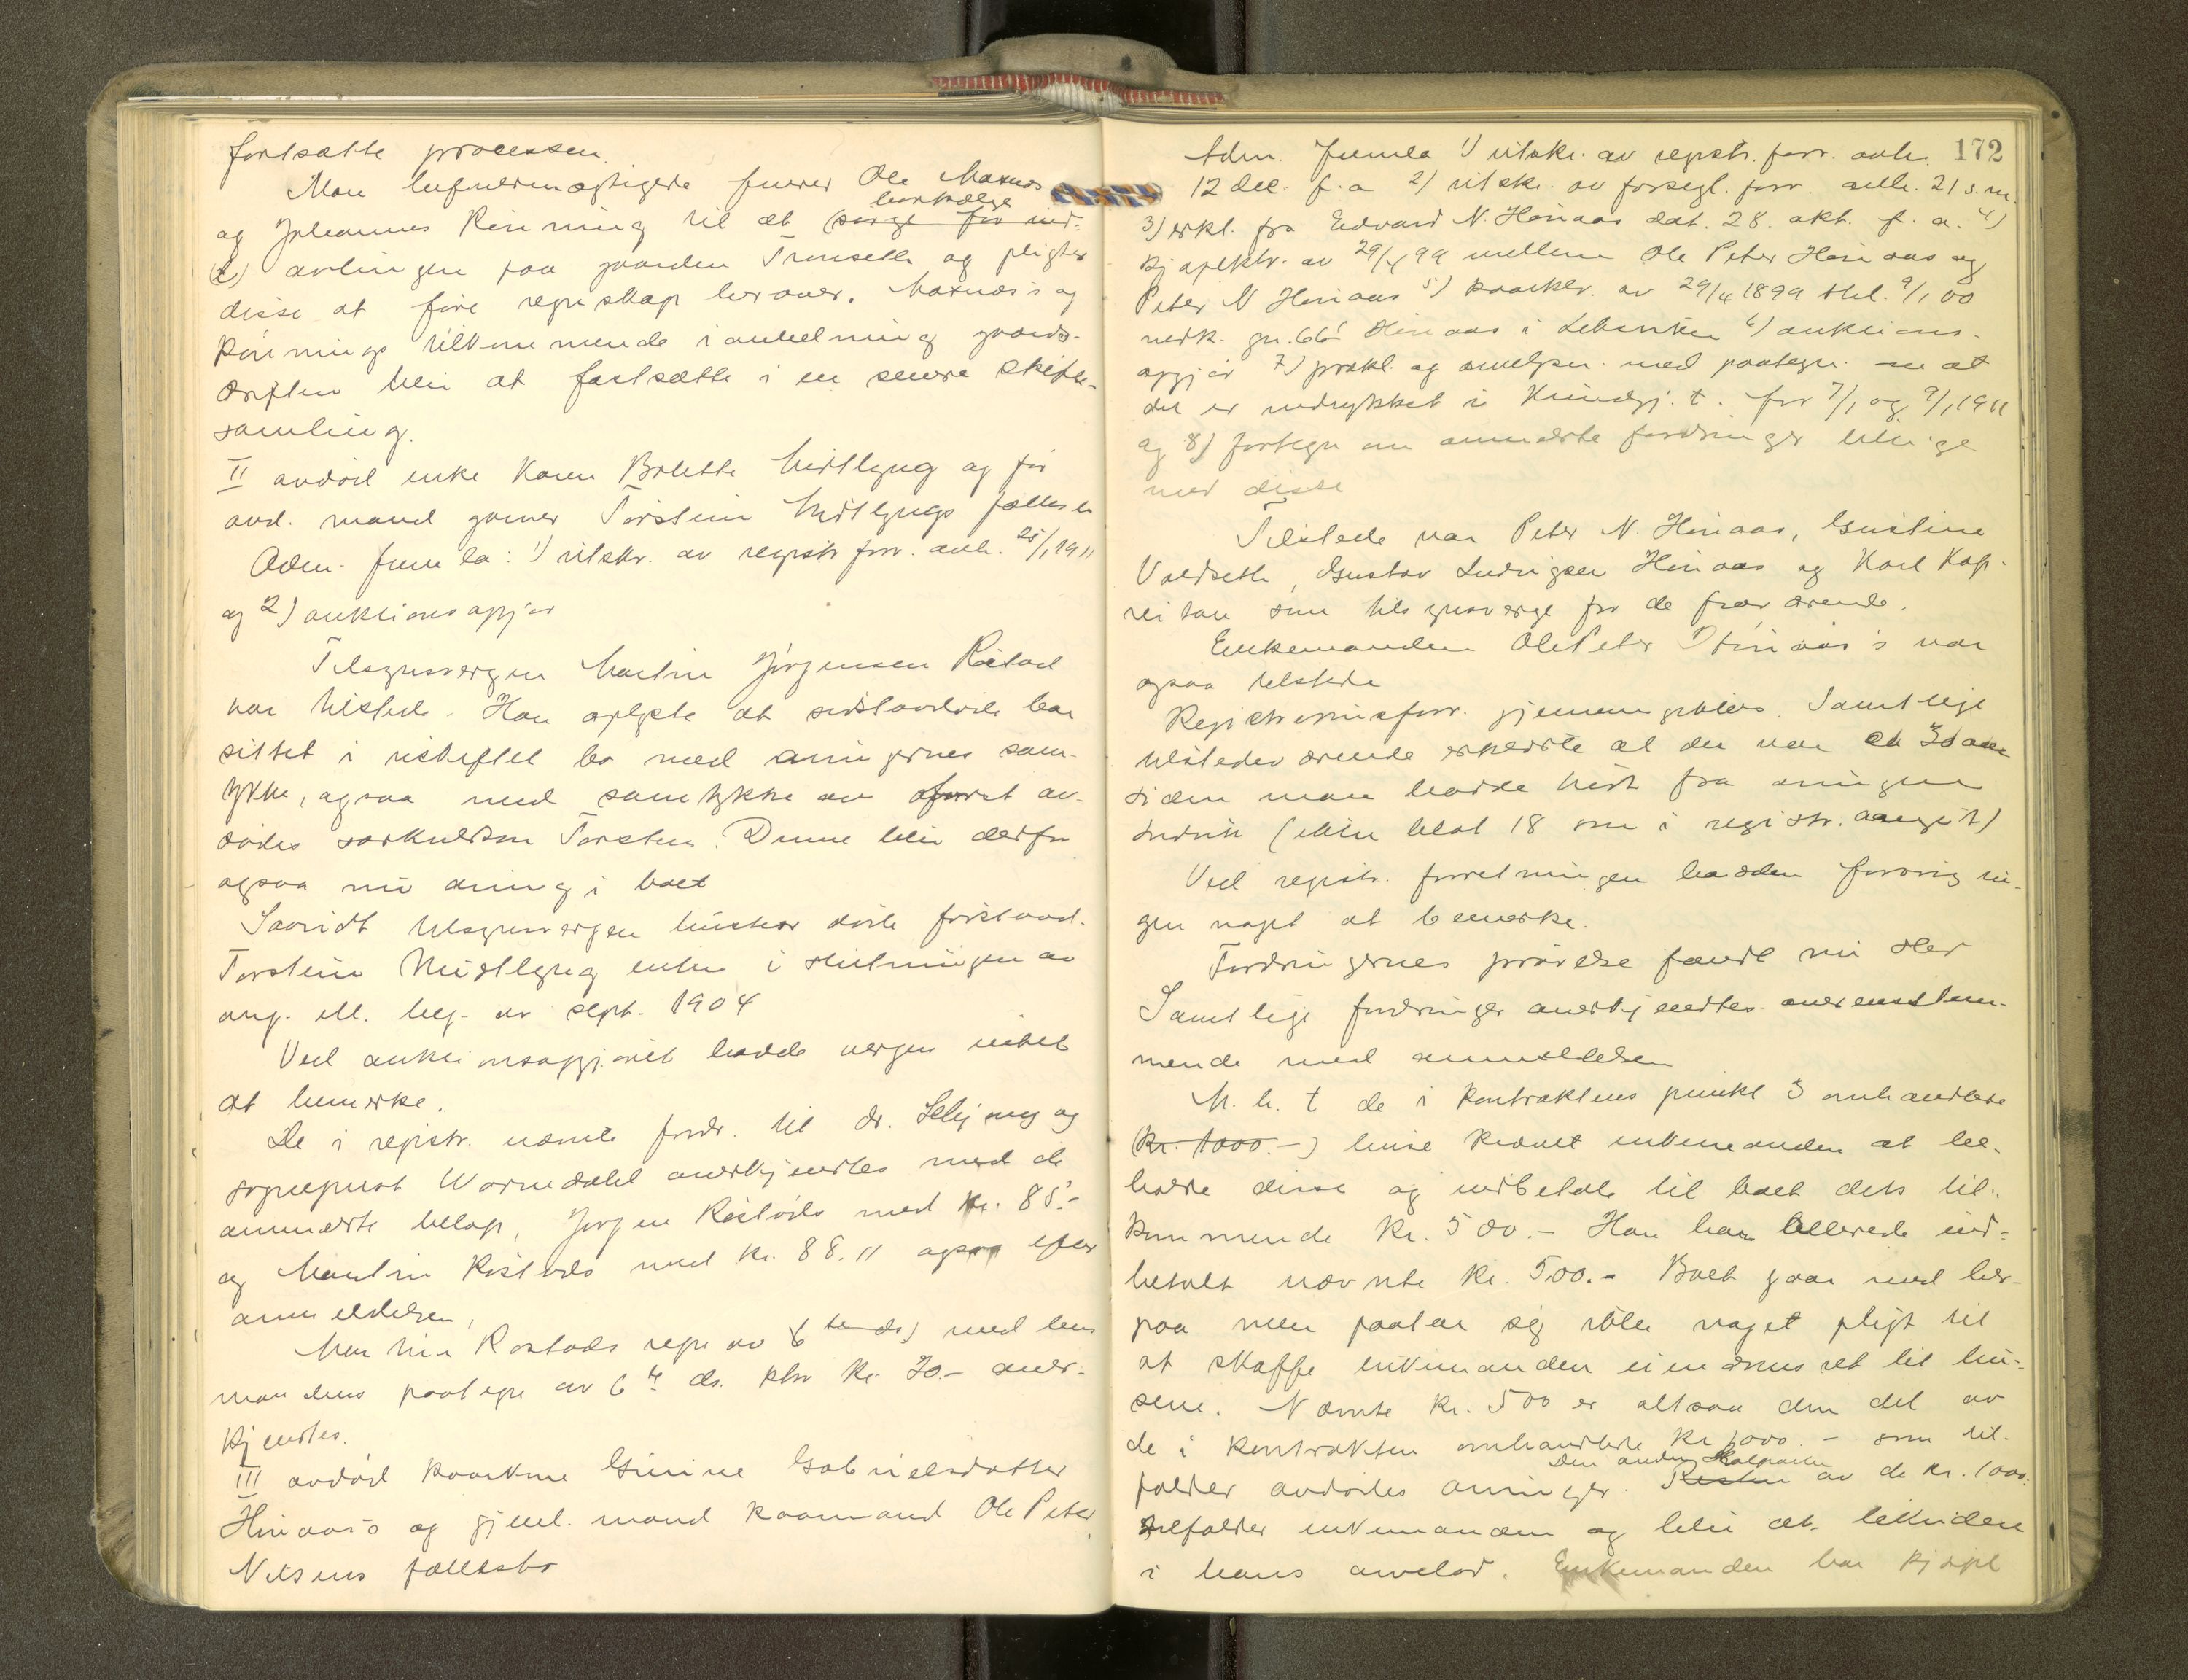 fortsætte processen.
Man befuldmægtigede fuerer Ole Moxnes
bortsælge
og Johannes Rönning til at (sörge for ind-
(t) avlingen paa gaarden Tronseth og pligter
disse at före regnskap herover. Moxnes's og
Rönnings tilkommende i anledning gaards-
driften blir at fastsætte i en senere skifte-
samling.
II avdöd enke Karen Bolette Midtlyng og før
avd. mand gaver Torstein Midtlyngs fællesbo
Adm. fremla: 1) utskr. av registr forr. avh. 25/1 1911
og 2) auktionsopgjör
Tilsynsvergen Martin Jörgensen Röstad
var tilstede. Han oplyste at sidstavdöde har
sittet i uskiftet bo med arvingernes sam-
tykke, ogsaa med samtykke av först av-
dödes særkuldsön Torstein. Denne blir derfor
ogsaa nu arving i boet
Saavidt tilsynsvergen husker döde förstavd.
Torstein Midtlyng enten i slutningen av
aug. ell. beg. av sept. 1904
Ved auktionsopgjöret hadde vergen intet
at bemerke.
De i registr. nævnte fordr. til dr. Schjøng og
sogneprest Wormdahl anerkjendtes med de
anmeldte belöp, Jörgen Röstads med kr. 85.-
og Martin Röstads med kr. 88.11 ogsaa efter
anmeldelsen,
Martin Röstads regn av 6 ds) med lens
mandens paategn av 6te ds. stor kr. 20.- aner-
kjendtes.
III avdöd kaarkone Gurine Gabrielsdatter
Hinaas's og gjenl. mand kaarmand Ole Peter
Nilsens fællesbo
172
Adm. fremla 1) utskr. av registr. forr. avh.
12 dec. f. a 2) utskr. av forsegl. forr. avh. 21 s. m.
3) erkl. fra Edvard N. Hinaas dat. 28. okt. f. a. 4)
kjöpektr. av 29/4 99 mellem Ole Peter Hinaas og
Peter N Hinaas 5) kaarktr. av 29/4 1899 thl. 9/1 00
vedk. gn. 66 Hinaas i Leksviken 6) auktions-
opgjör 7) prokl. og med paategn. om at
det er indrykket i Kundgj. t. for 7/1 og 9/1 1911
og 8) fortegn om anmeldte fordringer tillige
med disse
Tilstede var Peter N. Hinaas, Gustine
Voldseth, Gustav Ludvigsen Hinaas og Karl Kop-
reitan som tilsynsverge for de fraværende.
Enkemanden Ole Peter Hinaas's var
ogsaa tilstede
Registreringsforr. gjennemgikkes. Samtlige
tilstedeværende erklærte at der var ca 30 aar
siden man hadde hört fra arvingen
Ludvik (ikke blot 18 som i registr. angit)
Ved registr. forretningen hadde forövrig in-
gen noget at bemerke.
Fordringernes prövelse fandt nu sted
Samtlige fordringer anerkjendtes overensstem-
mende med anmeldelsen
M. h. t de i kontraktens punkt 3 omhandlede
kr. 1000.-) huse krævet enkemanden at be-
holde disse og indbetale til boet dets til-
kommende kr. 500.- Han har allerede ind-
betalt nævnte kr. 500.- Boet gaar med her-
paa men paatar sig ikke noget pligt til
at skaffe enkemanden eiendomsret til hu-
sene. Nævnte kr. 500 er altsaa den del av
de i kontrakten omhandlede kr 1000.- som til-
Den anden Halvparten
falder avdödes arvinger. Resten av de kr. 1000.
tilfalder enkemanden og blir at likvidere
i hans arvelod. Enkemanden har kjöpt